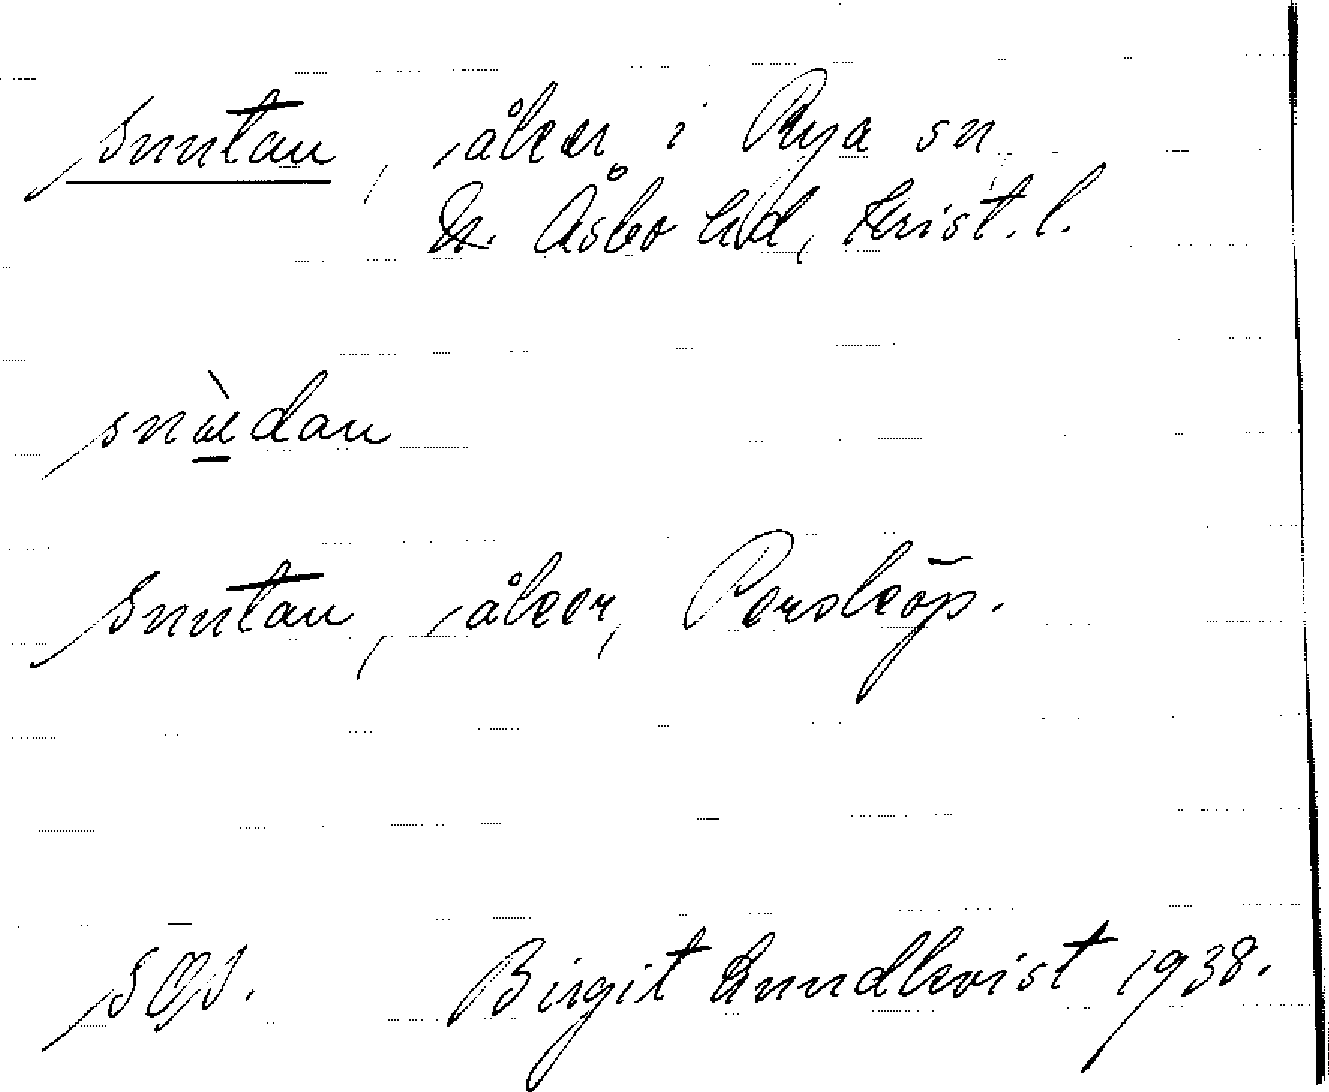 Snutan, åker i Rya sn
N. Åsbo hd, Krist. l.
snùdan
Snutan, åker, Persköp.
Birgit Lundkvist 1938.